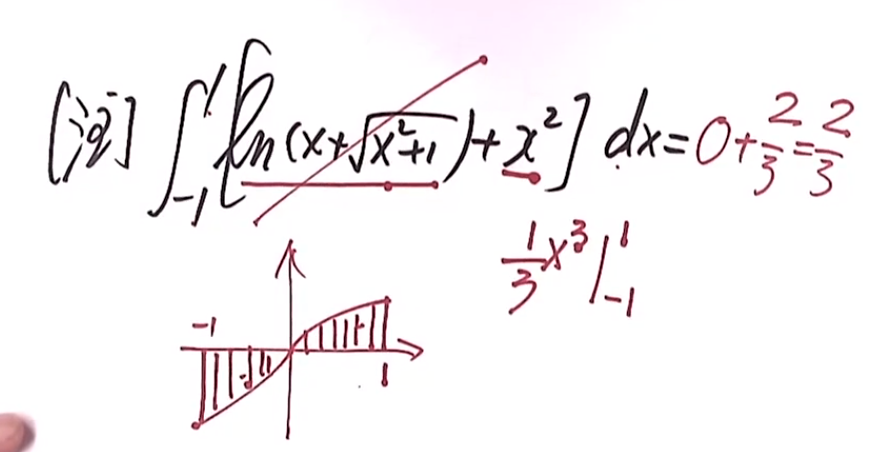 [注] ∫₋₁¹ [ln(x+√(x²+1))+x²] dx=0+2/3=2/3
1/3 x³|₋₁¹
-1
1